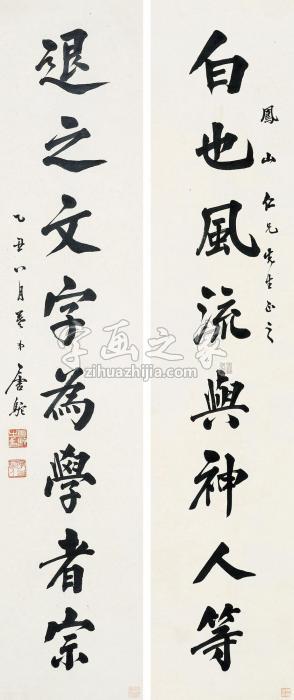 鳳山仁兄先生正之
白也風流與神人等
退之文字為學者宗
乙丑八月唐駝
字画之家
zihuazhijia.com